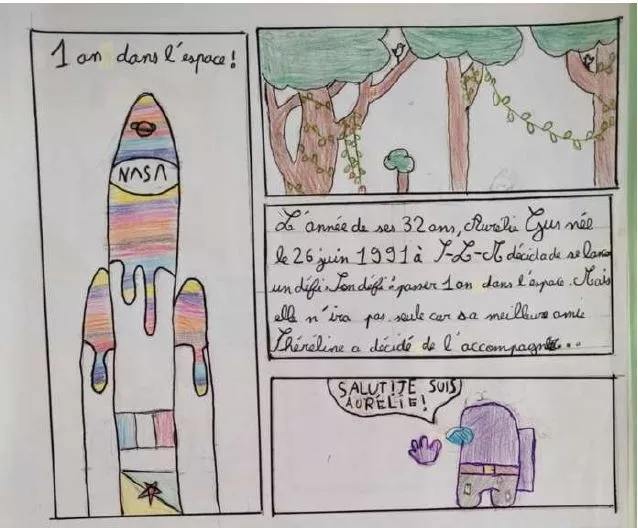 1 an dans l'espace !
NASA
L'année de ses 32 ans, Aurélie Gus née
le 26 juin 1991 à I-L-M décida de se lancer
un défi. Son défi : passer 1 an dans l'espace. Mais
elle n'ira pas seule car sa meilleure amie
Théréline a décidé de l'accompagner...
SALUT ! JE SUIS
AURÉLIE !